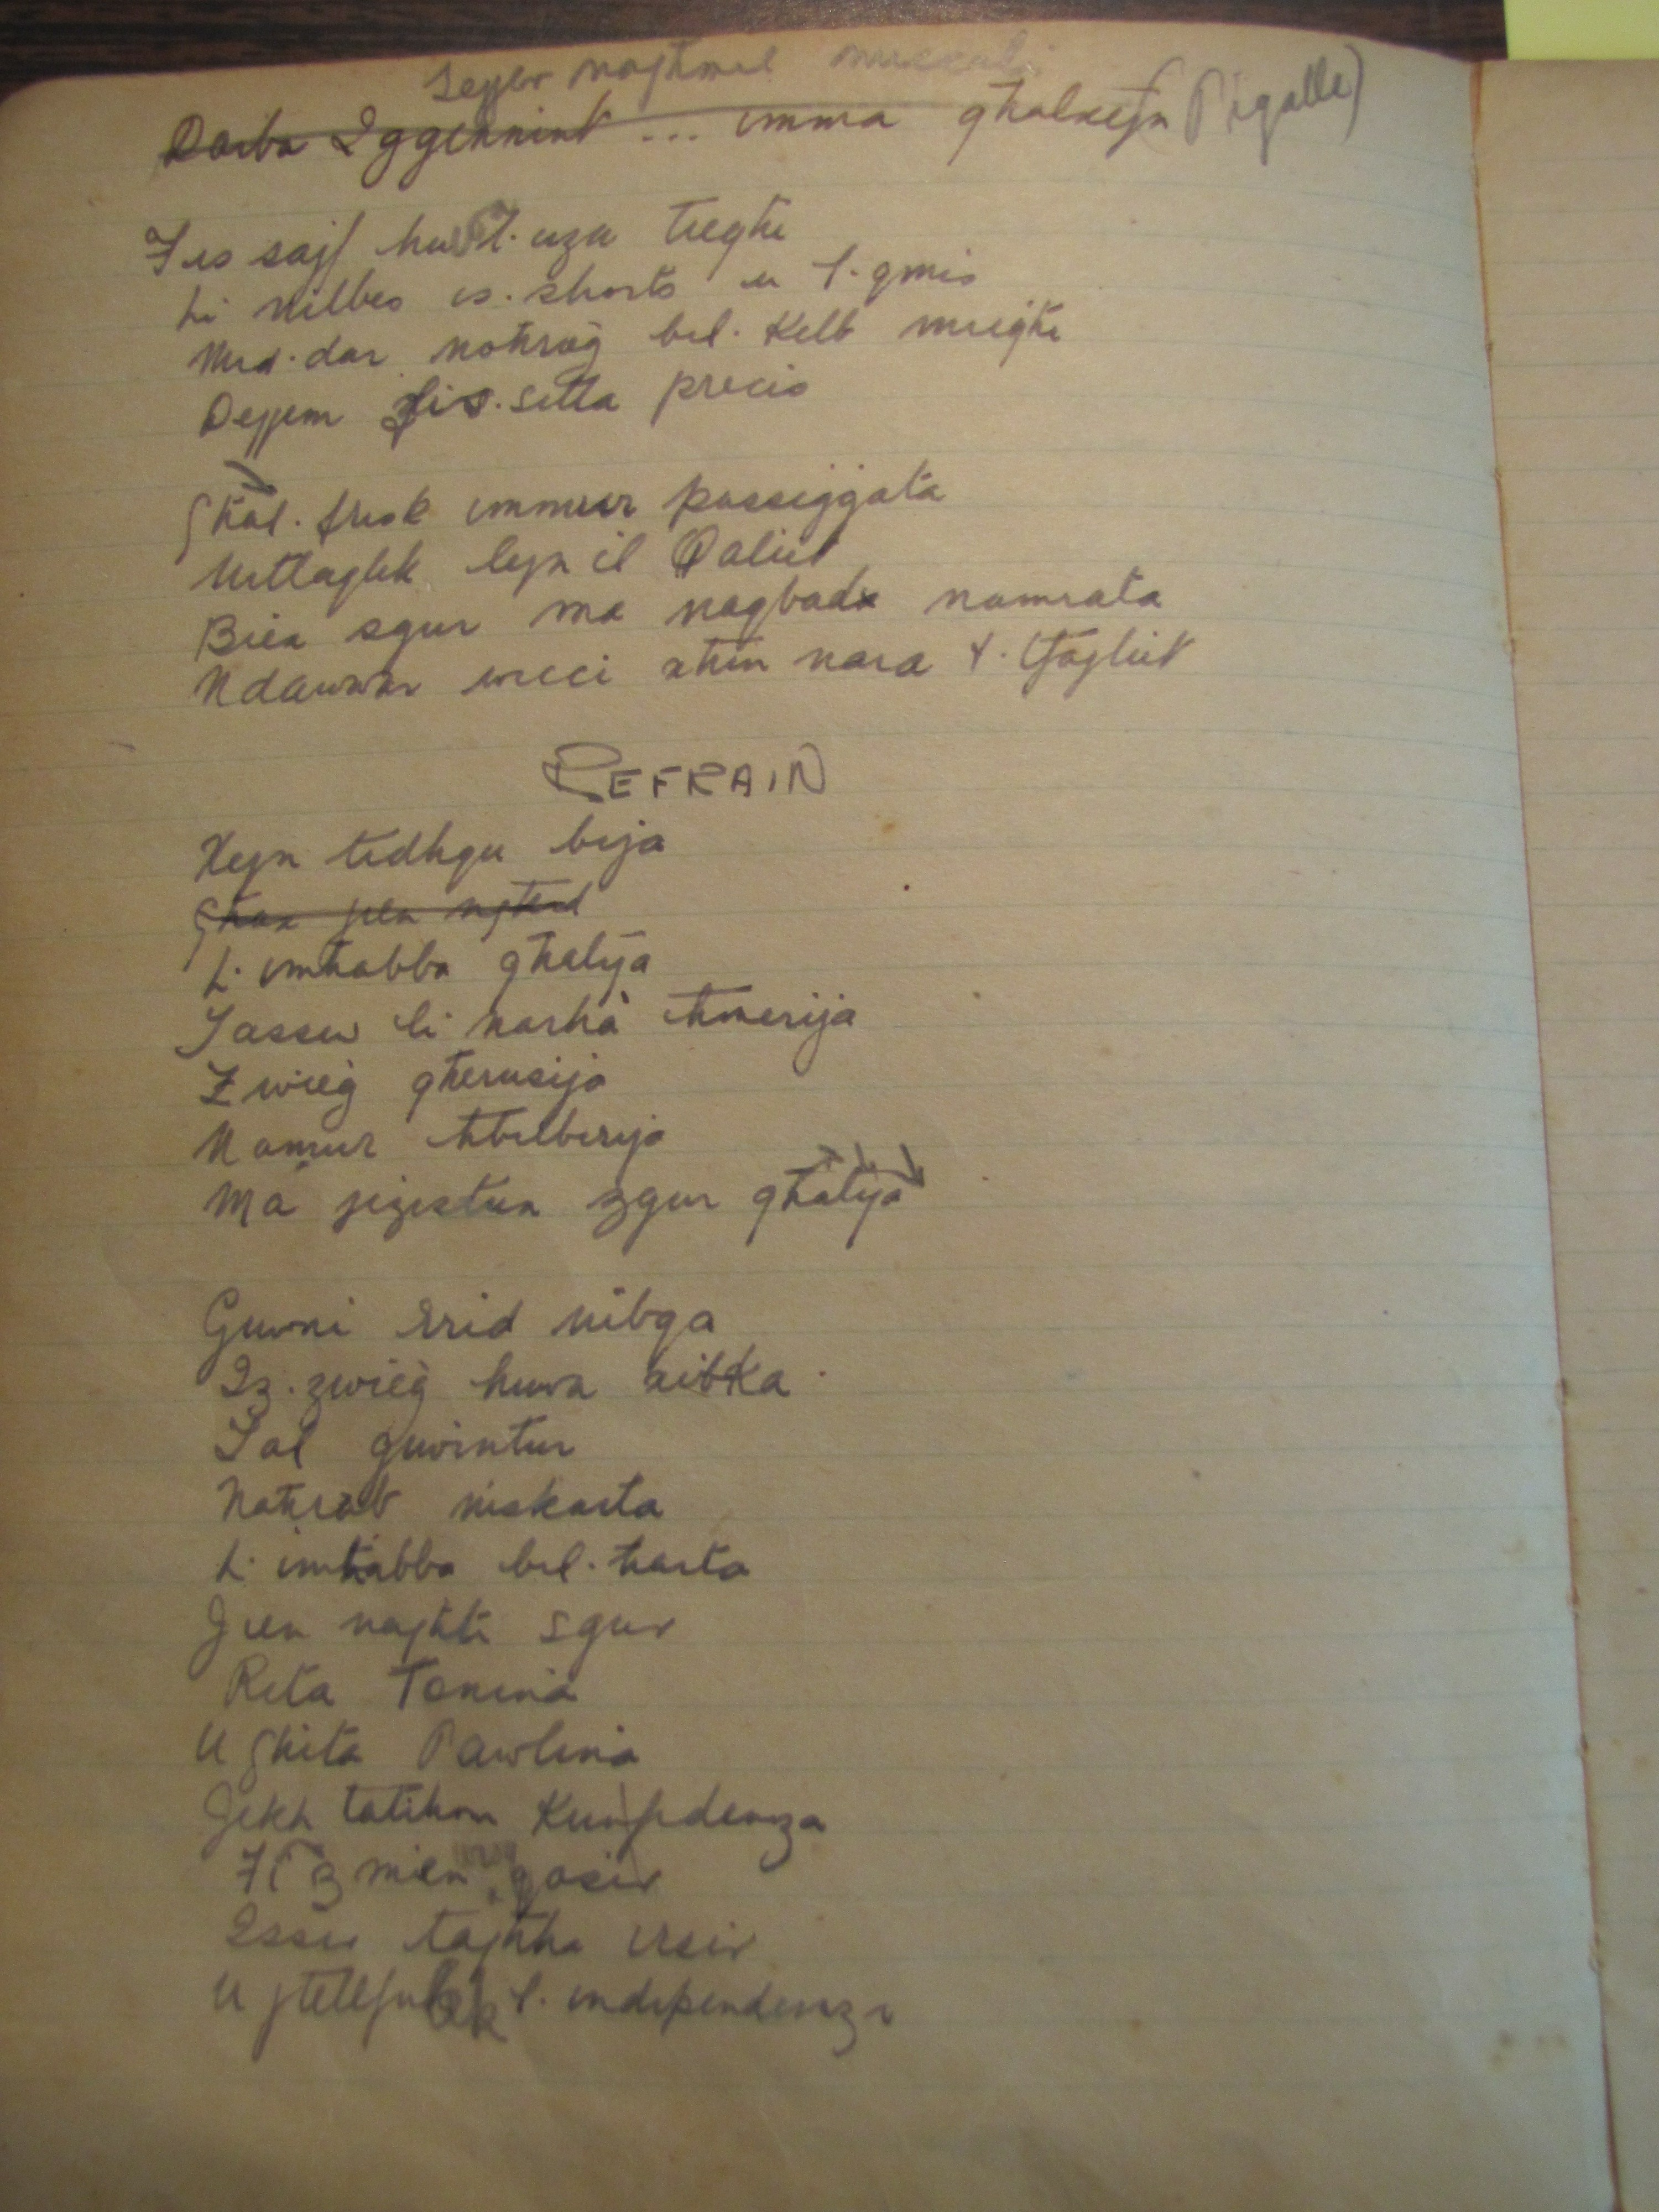 Darba Iggennint ... imma għalxejn (Pigalle)
Fis sajf hu l. użu tiegħi
Li nilbes is. shorts u l. qmis
Mid. dar noħroġ bil. Kelb miegħi
Dejjem fis. sitta preciż
Għal. frisk immur passiġġata
Mittajlek lejn il Paliet
Biex żgur ma naqbadx namrata
Ndawwar wiċċi xħin nara t. tfajliet
REFRAIN
Xejn tidħqu bija
Għax jien ngħid
L. imħabba għalija
Jassew li narha ħmerija
Żwieġ għerusija
Namur ħbilberija
Ma jeżistux żgur għalija
Guvni rrid nibqa
Iż. żwieġ huwa xibka
Tal quwintur
Naħrab niskarta
L. imħabba bil. ħarta
Jien najħti sgur
Rita Tonina
U Ghita Pawlina
Jekk tatihom Kunfidenza
Fi żmien qasir
Issir tajħha rsir
U jtellfulek l. independenza